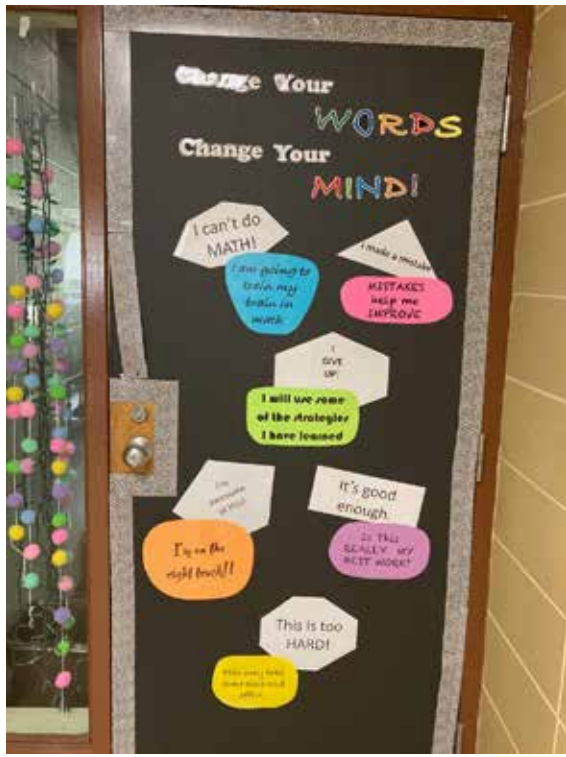 Change Your
WORDS
Change Your
MIND!
I can't do
MATH!
I am going to
train my
brain in
math
I made a mistake
MISTAKES
help me
IMPROVE
I
GIVE
UP!
I will use some
of the strategies
I have learned
I'm
awesome
at this!
I'm on the
right track!!
It's good
enough.
Is this
REALLY MY
BEST WORK?
This is too
HARD!
This may take
some time and